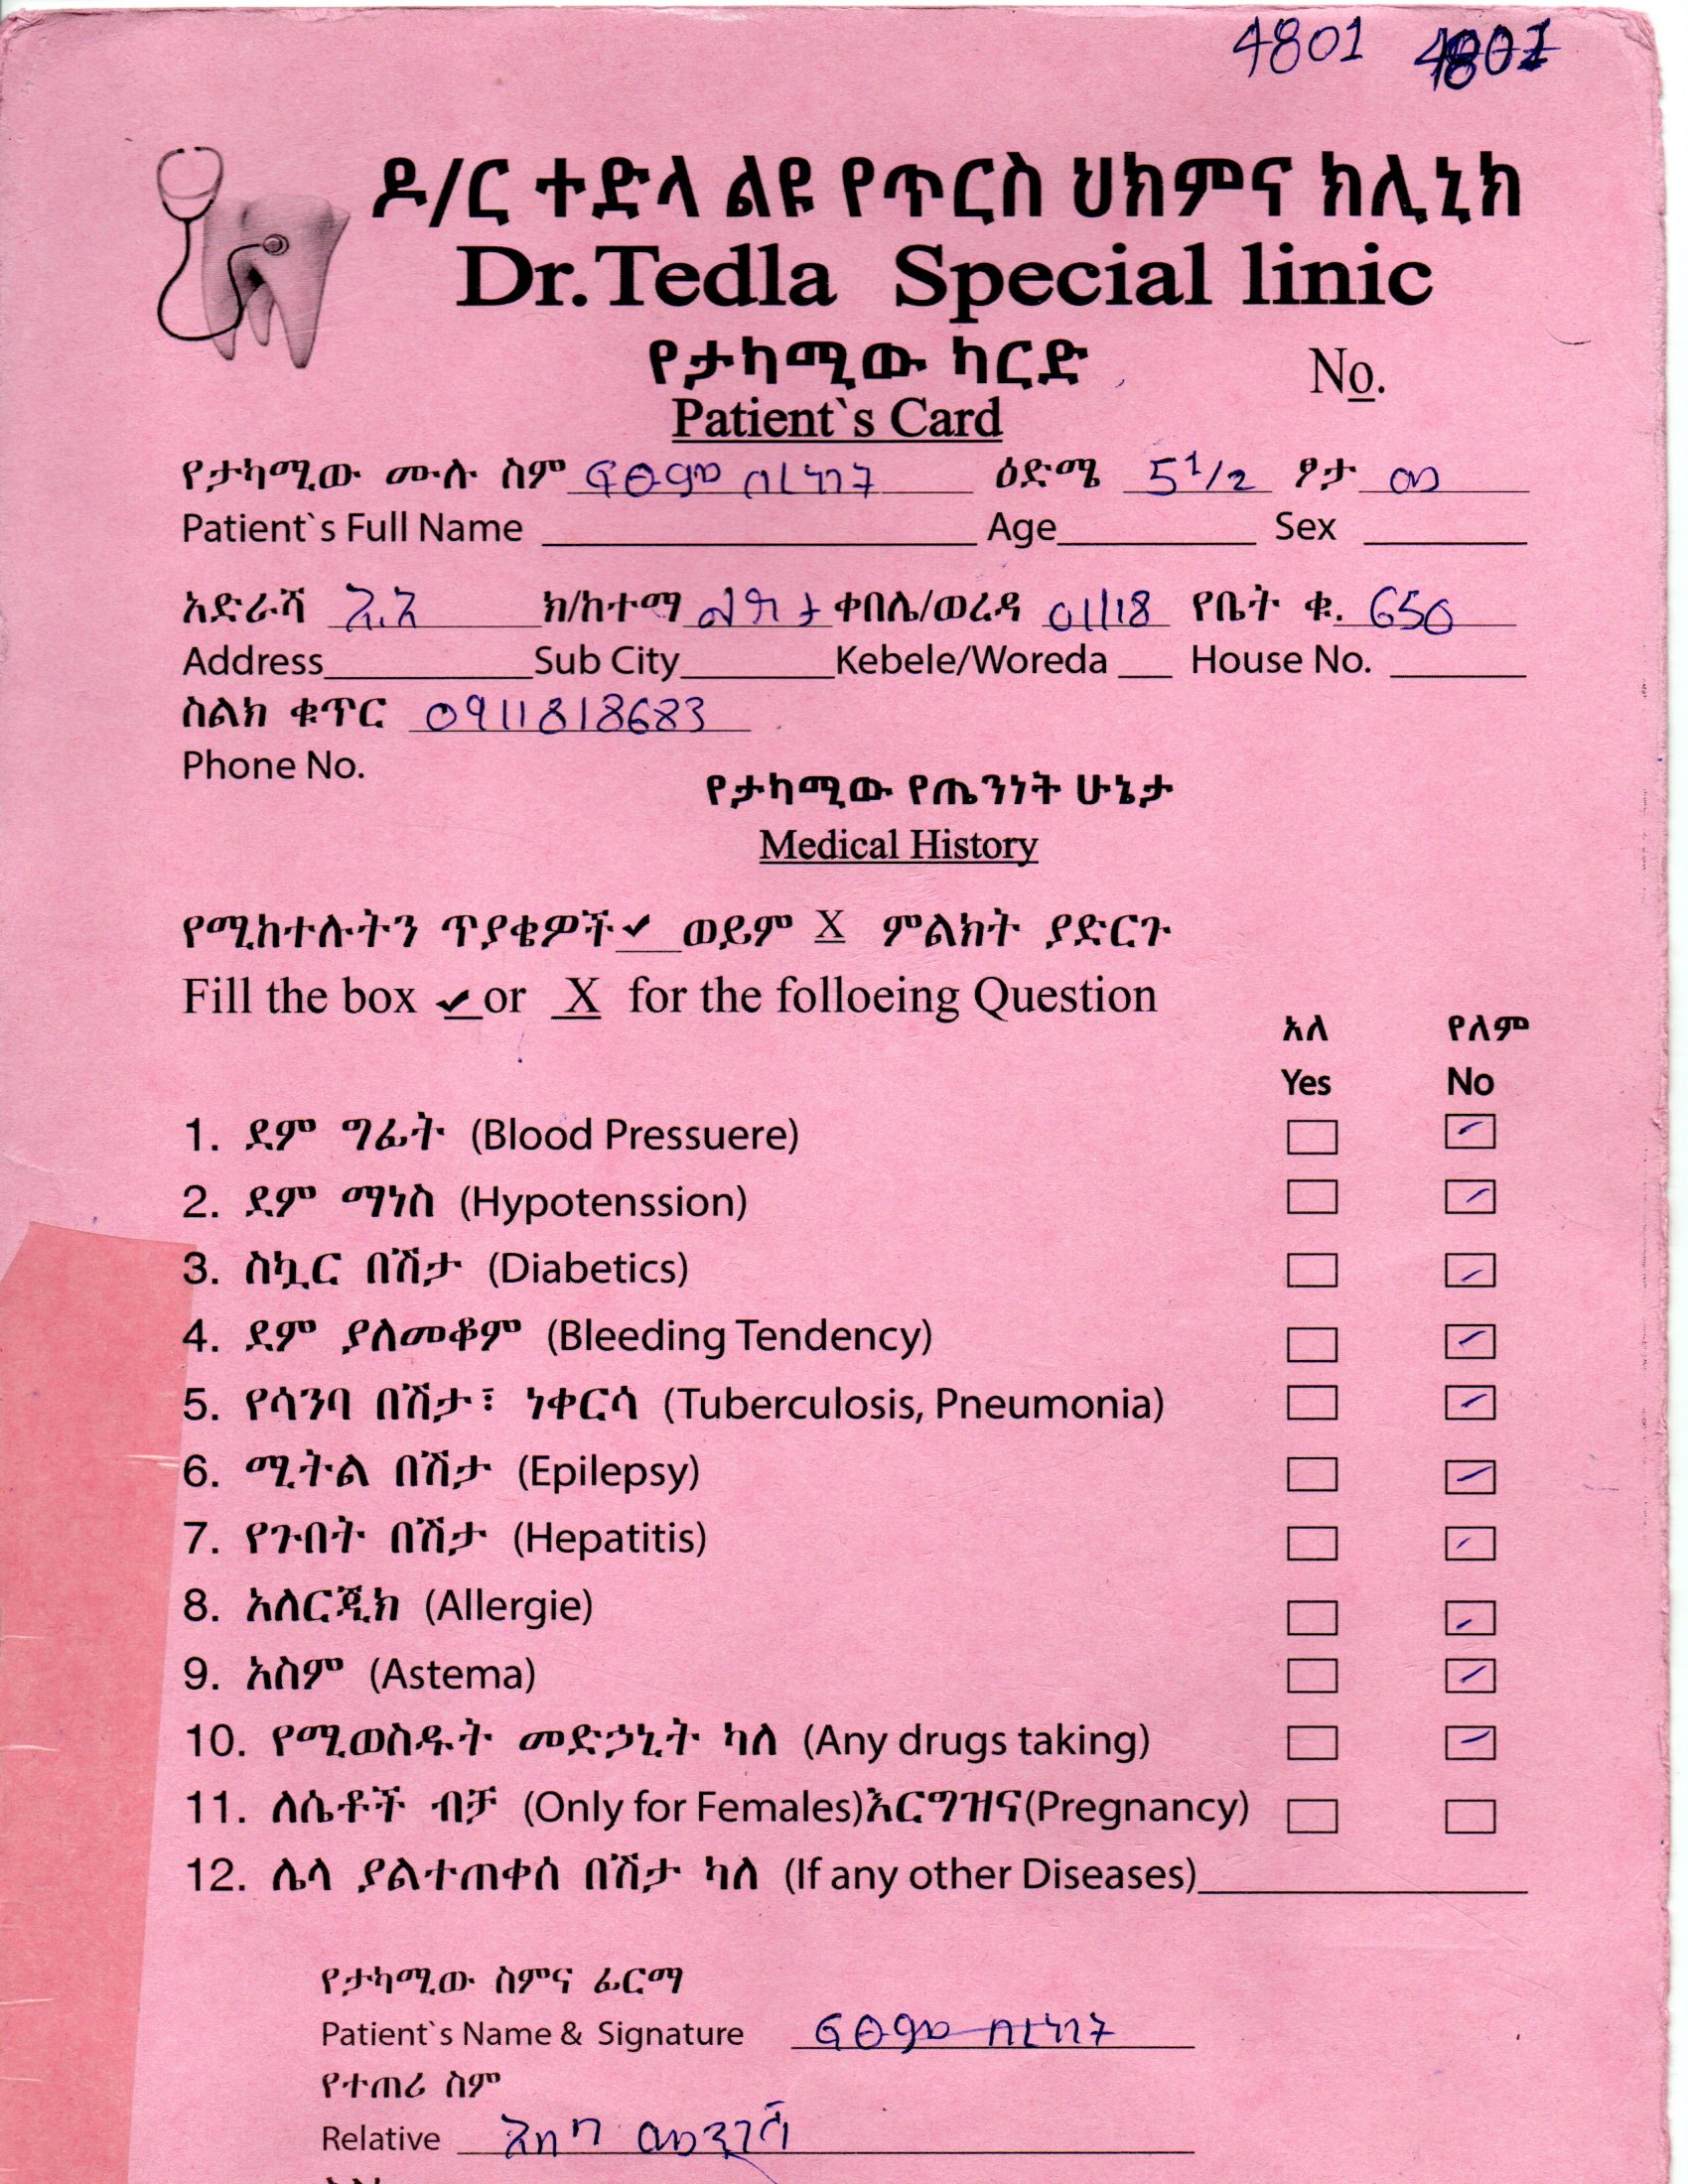 4801
ዶ/ር ተድላ ልዩ የጥርስ ህክምና ክሊኒክ
Dr.Tedla Special linic
የታካሚው ካርድ No.
Patient`s Card
የታካሚው ሙሉ ስም ዕድሜ 5 1/2 ፆታ
Patient`s Full Name Age Sex
አድራሻ አ.አ ክ/ከተማ ቀበሌ/ወረዳ 01/18 የቤት ቁ. 650
Address Sub City Kebele/Woreda House No.
ስልክ ቁጥር 0911818683
Phone No.
የታካሚው የጤንነት ሁኔታ
Medical History
የሚከተሉትን ጥያቄዎች ✓ ወይም X ምልክት ያድርጉ
Fill the box ✓ or X for the folloeing Question
አለ የለም
Yes No
1. ደም ግፊት (Blood Pressuere)
2. ደም ማነስ (Hypotenssion)
3. ስኳር በሽታ (Diabetics)
4. ደም ያለመቆም (Bleeding Tendency)
5. የሳንባ በሽታ፣ ነቀርሳ (Tuberculosis, Pneumonia)
6. ሚትል በሽታ (Epilepsy)
7. የጉበት በሽታ (Hepatitis)
8. አለርጂክ (Allergie)
9. አስም (Astema)
10. የሚወስዱት መድኃኒት ካለ (Any drugs taking)
11. ለሴቶች ብቻ (Only for Females)እርግዝና(Pregnancy)
12. ሌላ ያልተጠቀሰ በሽታ ካለ (If any other Diseases)
የታካሚው ስምና ፊርማ
Patient`s Name & Signature
የተጠሪ ስም
Relative